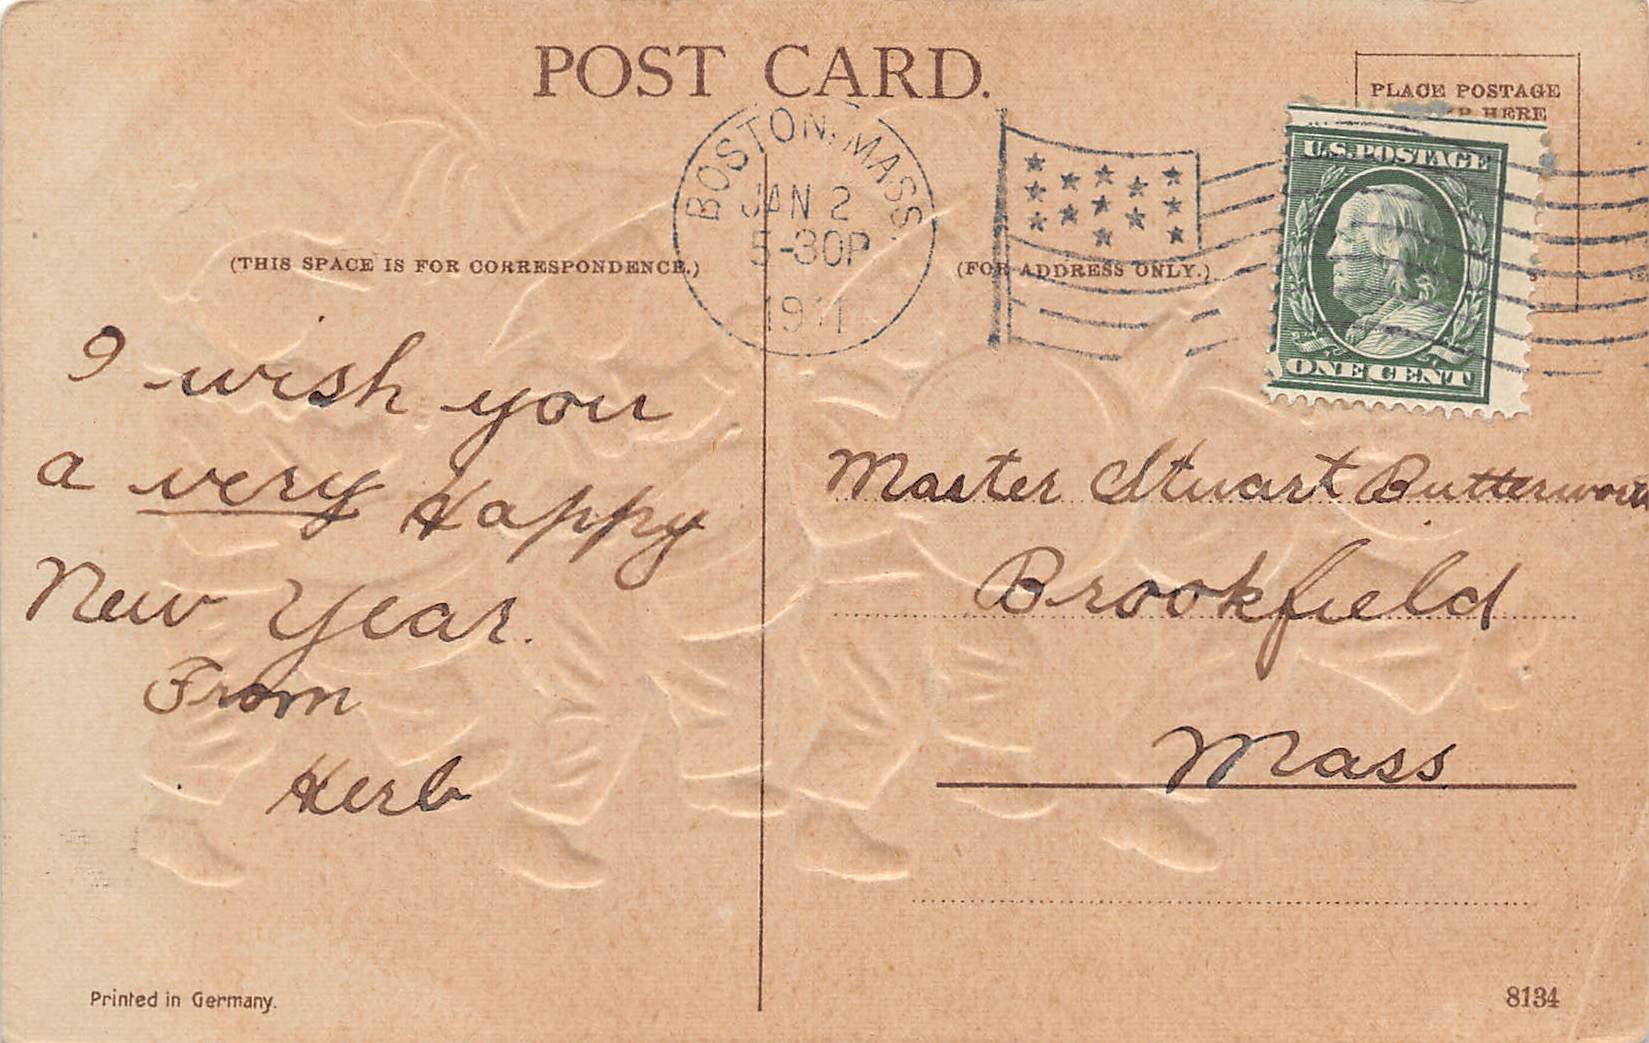 POST CARD.
PLACE POSTAGE
HERE
U.S. POSTAGE
ONE CENT
BOSTON, MASS.
JAN 2
5-30P
1911
(THIS SPACE IS FOR CORRESPONDENCE.)
(FOR ADDRESS ONLY.)
I wish you
a very Happy
New Year.
From
Herb
Master Stuart Butterworth
Brookfield
Mass
Printed in Germany.
8134